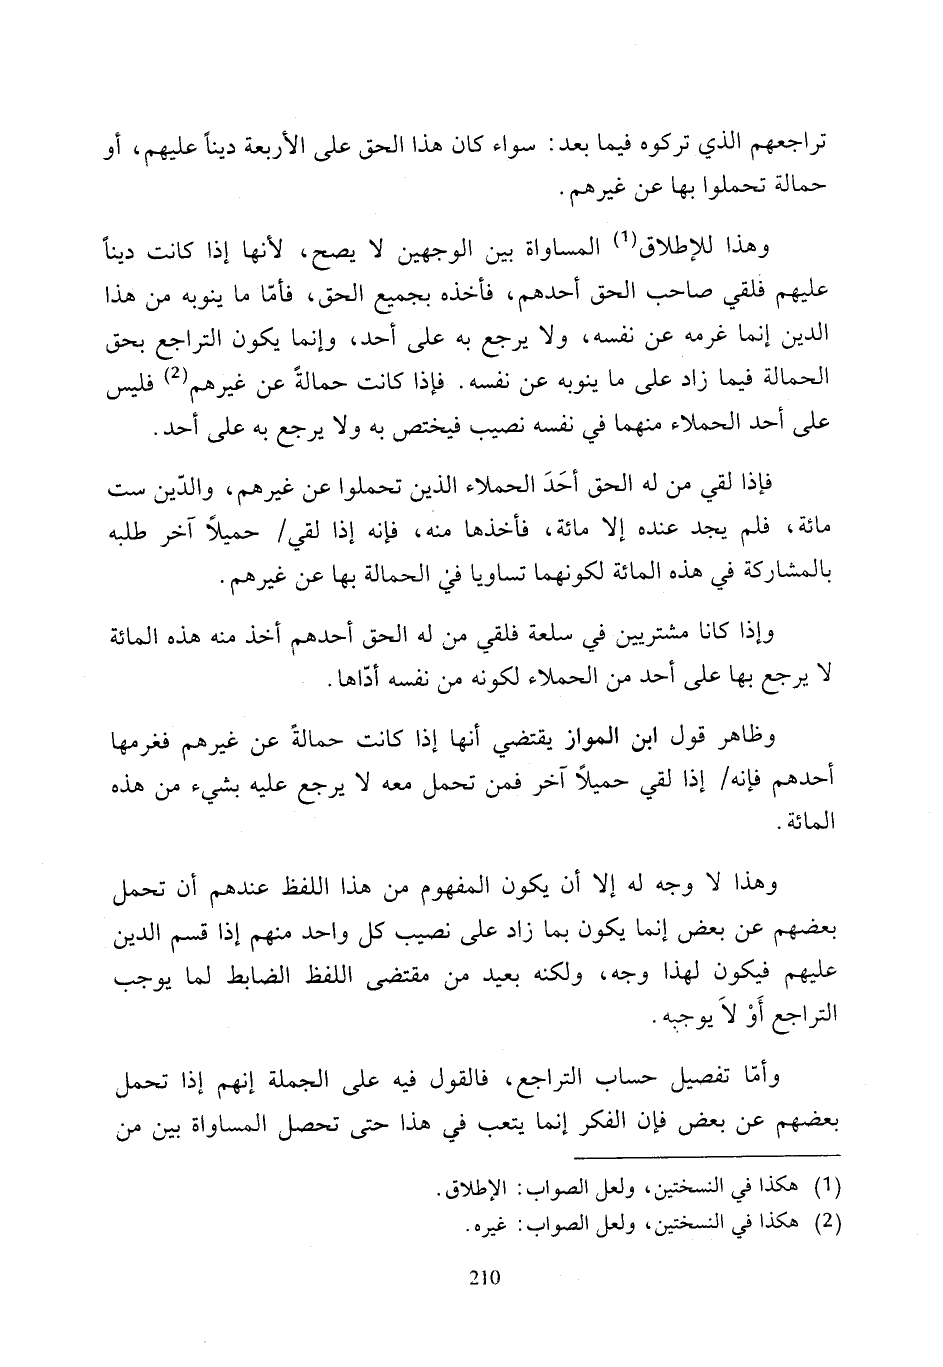 تراجعهم الذي تركوه فيما بعد: سواء كان هذا الحق على الأربعة ديناً عليهم، أو
حمالة تحملوا بها عن غيرهم.
وهذا للإطلاق(1) المساواة بين الوجهين لا يصح، لأنها إذا كانت ديناً
عليهم فلقي صاحب الحق أحدهم، فأخذه بجميع الحق، فأمّا ما ينوبه من هذا
الدين إنما غرمه عن نفسه، ولا يرجع به على أحد، وإنما يكون التراجع بحق
الحمالة فيما زاد على ما ينوبه عن نفسه. فإذا كانت حمالةً عن غيرهم(2) فليس
على أحد الحملاء منهما في نفسه نصيب فيختص به ولا يرجع به على أحد.
فإذا لقي من له الحق أحَدَ الحملاء الذين تحملوا عن غيرهم، والدّين ست
مائة، فلم يجد عنده إلا مائة، فأخذها منه، فإنه إذا لقي/ حميلاً آخر طلبه
بالمشاركة في هذه المائة لكونهما تساويا في الحمالة بها عن غيرهم.
وإذا كانا مشتريين في سلعة فلقي من له الحق أحدهم أخذ منه هذه المائة
لا يرجع بها على أحد من الحملاء لكونه من نفسه أدّاها.
وظاهر قول ابن المواز يقتضي أنها إذا كانت حمالةً عن غيرهم فغرمها
أحدهم فإنه/ إذا لقي حميلاً آخر فمن تحمل معه لا يرجع عليه بشيء من هذه
المائة.
وهذا لا وجه له إلا أن يكون المفهوم من هذا اللفظ عندهم أن تحمل
بعضهم عن بعض إنما يكون بما زاد على نصيب كل واحد منهم إذا قسم الدين
عليهم فيكون لهذا وجه، ولكنه بعيد من مقتضى اللفظ الضابط لما يوجب
التراجع أَوْ لاَ يوجبه.
وأمّا تفصيل حساب التراجع، فالقول فيه على الجملة إنهم إذا تحمل
بعضهم عن بعض فإن الفكر إنما يتعب في هذا حتى تحصل المساواة بين من
(1) هكذا في النسختين، ولعل الصواب: الإطلاق.
(2) هكذا في النسختين، ولعل الصواب: غيره.
210